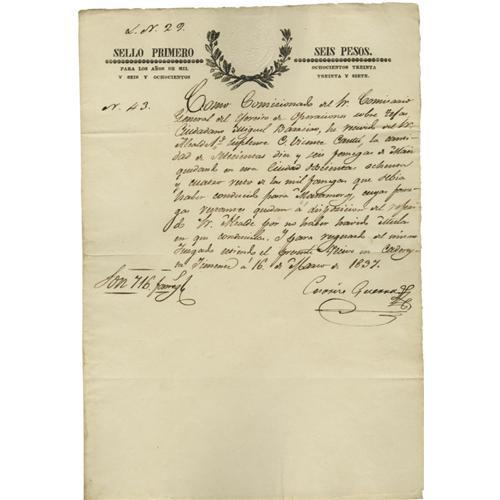 L. N. 29.
SELLO PRIMERO
SEIS PESOS.
PARA LOS AÑOS DE MIL
OCHOCIENTOS TREINTA
Y SEIS Y OCHOCIENTOS
TREINTA Y SIETE.
N. 43.
Como Comicionado del Sr. Comisario
General del Ejercito de Operaciones sobre Tejas
Ciudadano Miguel Barrera, he recivido del Sr.
Alcalde 1º Suplente C. Vicente Cantú, la canti-
dad de Setecientas diez y seis fanegas de Mais
quedando en esa Ciudad Docientas ochenta
y cuatro resto de las mil fanegas que debia
haber conducido para Matamoros, cuyas fane-
gas repetimos quedan á disposicion del referi-
do Sr. Alcalde por no haber havido Mula
en que conducirlas. Y para resguardo del mismo
Juzgado estiendo el presente Recivo en Cadereyta
Jimenez á 16 de Marzo de 1837.
Son 716. faneg.s
Guerra